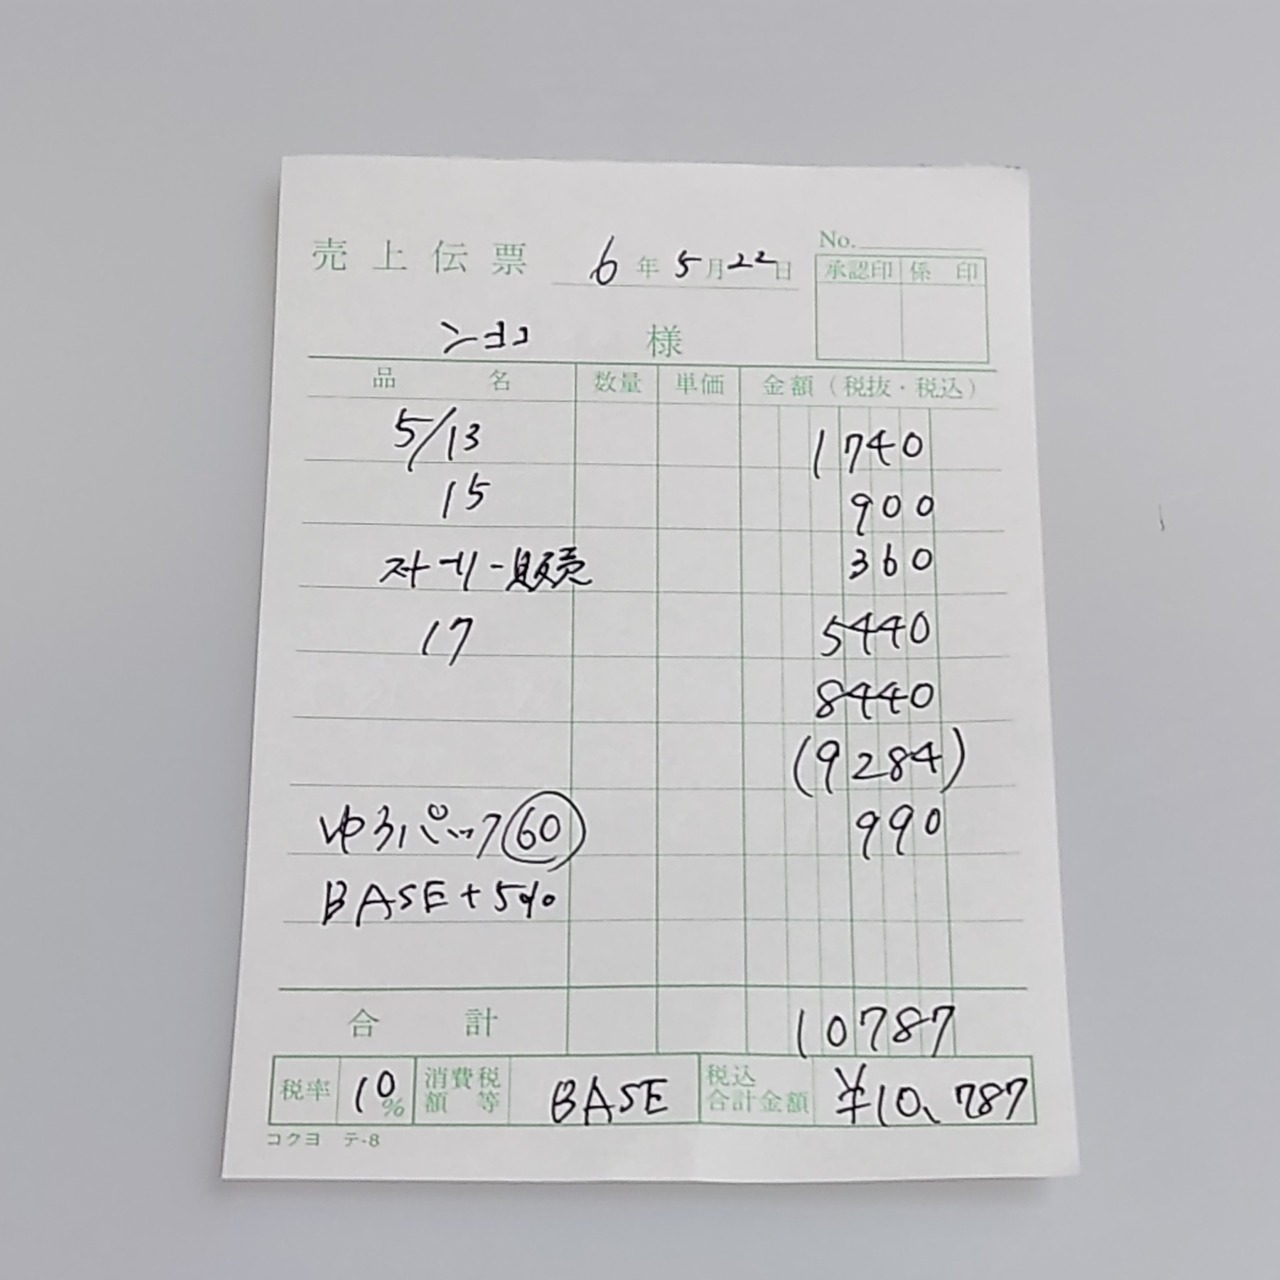 No.
売上伝票 6年5月22日
承認印 係印
ンヨコ 様
品名 数量 単価 金額（税抜・税込）
5/13 1740
15 900
ストーリー販売 360
17 5440
8440
(9284)
ゆうパック60 990
BASE+5%
合計 10787
税率 10% 消費税額等 BASE 税込合計金額 ¥10、787
コクヨ テ-8